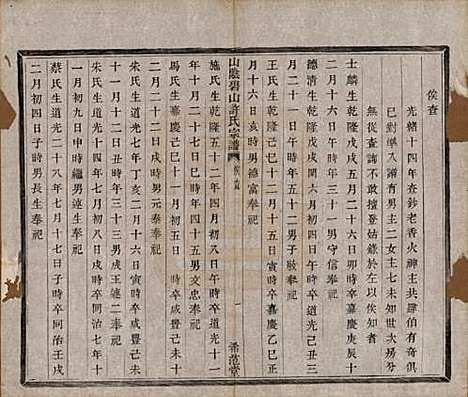 俟查
光緒十四年查鈔老香火神主共肆伯有奇俱
已對準入譜有男主二女主七未知世次房分
無從查詢不敢擅登姑錄於左以俟知者
士麟生乾隆戊戌十二月二十六日卯時卒嘉慶庚辰十
月二十一日亥時年三十一男守信奉祀
德清生乾隆戊戌閏六月初八日戌時卒道光己丑三
月二十一日戌時年五十二男子敏奉祀
王氏生乾隆己巳十二月十五日寅時卒嘉慶乙巳正
月十六日亥時男德富奉祀
山陰碧山許氏宗譜
一
希范堂
施氏生乾隆五十二年四月初十日丑時卒道光十一
年十月二十二日巳時年四十五男文忠奉祀
馬氏生嘉慶己巳十一月初五日 時卒咸豐己未十
二月二十二日戌時男元泰奉祀
朱氏生道光七年丁亥二月十六日寅時卒咸豐己未
十一月十二日丑時年三十三男成玉璉二奉祀
朱氏生道光十四年七月初八日戌時卒同治七年十
一月初九日申時繼男連生奉祀
蔡氏生道光二十八年七月十七日子時卒同治壬戌
二月初四日子時男長生奉祀